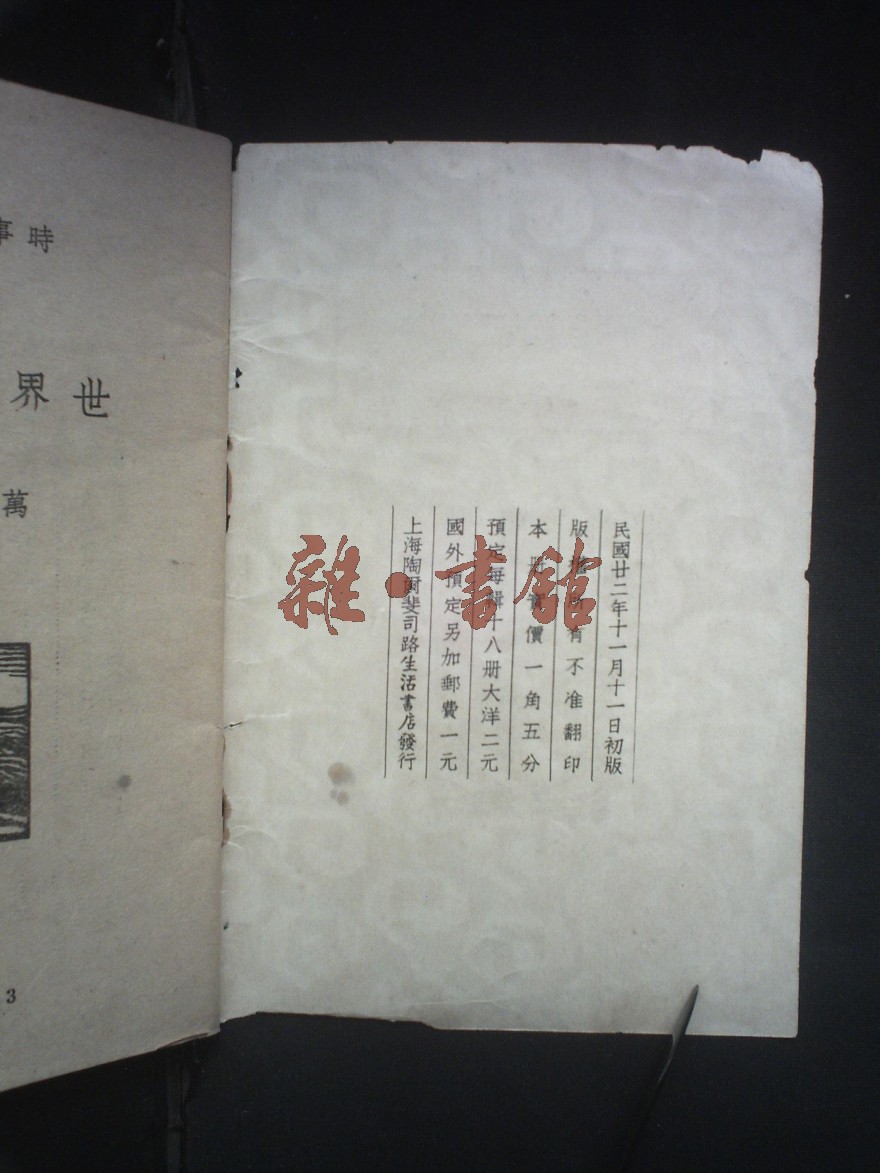 民國廿二年十一月十一日初版
版權所有不准翻印
本册實價一角五分
預定每輯十八册大洋二元
國外預定另加郵費一元
上海陶爾斐司路生活書店發行
時事
世界
萬
3
雜·書館